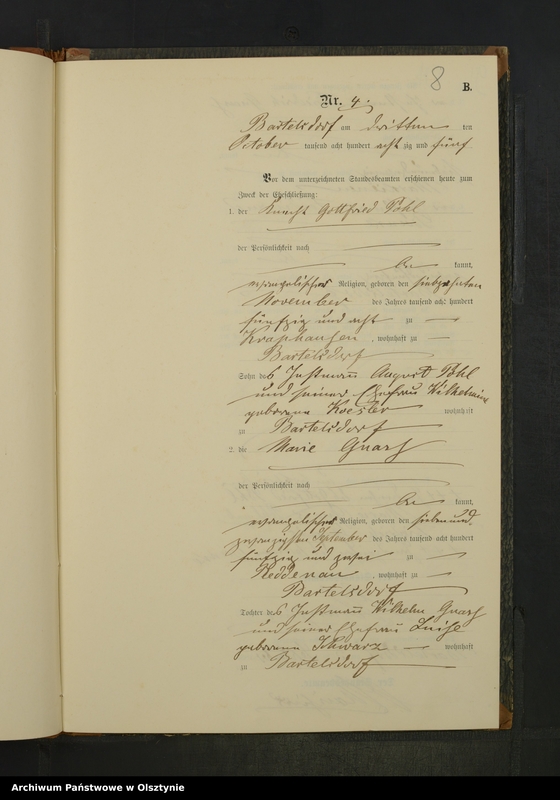 8
B.
Nr. 4.
Bartelsdorf am dritten ten
October tausend acht hundert achtzig und fünf
Vor dem unterzeichneten Standesbeamten erschienen heute zum
Zweck der Eheschließung:
1. der Knecht Gottfried Pohl
der Persönlichkeit nach
be kannt,
evangelischer Religion, geboren den siebzehnten
November des Jahres tausend acht hundert
fünfzig und acht zu
Kraphausen, wohnhaft zu
Bartelsdorf
Sohn des Instmann August Pohl
und seiner Ehefrau Wilhelmine
geborene Koesler wohnhaft
zu Bartelsdorf
2. die Marie
der Persönlichkeit nach
be kannt,
evangelischer Religion, geboren den sieben und
zwanzigsten September des Jahres tausend acht hundert
fünfzig und zwei zu
Reddenau, wohnhaft zu
Bartelsdorf
Tochter des Instmann Wilhelm
und seiner Ehefrau Luise
geborene Schwarz wohnhaft
zu Bartelsdorf
Archiwum Państwowe w Olsztynie